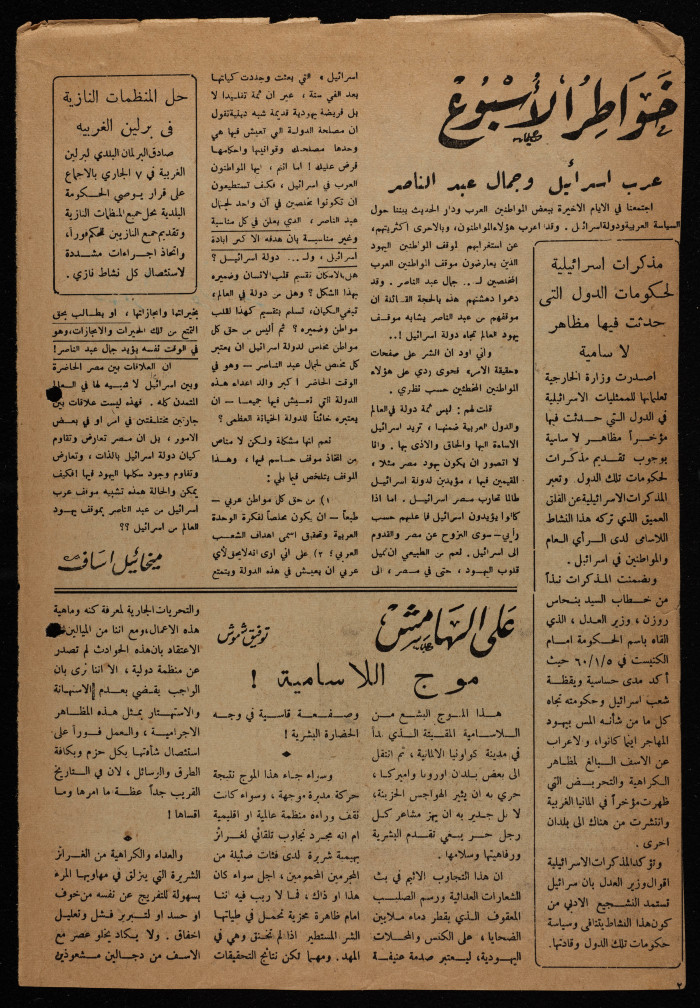 خواطر الأسبوع
عرب اسرائيل وجمال عبد الناصر
اجتمعنا في الايام الاخيرة ببعض المواطنين العرب ودار الحديث بيننا حول
السياسة العربية ودولة اسرائيل. وقد اعرب هؤلاء المواطنون، وبالاحرى اكثريتهم،
عن استغرابهم لموقف المواطنين اليهود
الذين يعارضون موقف المواطنين العرب
المخلصين لـ .. جمال عبد الناصر. وقد
دعموا دهشتهم هذه بالحجة القائلة ان
موقفهم من عبد الناصر يشابه موقف
يهود العالم تجاه دولة اسرائيل !..
واني اود ان انشر على صفحات
«حقيقة الامر» فحوى ردي على هؤلاء
المواطنين المخطئين حسب نظري.
قلت لهم: ليس ثمة دولة في العالم
والدول العربية ضمنها، تريد اسرائيل
الاساءة اليها والحاق والاذى بها. وانا
لا اتصور ان يكون يهود مصر مثلا،
المقيمين فيها، مؤيدين لدولة اسرائيل
طالما تحارب مصر اسرائيل. اما اذا
كانوا يؤيدون اسرائيل فما عليهم حسب
رأيي - سوى النزوح عن مصر والقدوم
الى اسرائيل. نعم من الطبيعي ان تميل
قلوب اليهود، حتى في مصر، الى
اسرائيل» التي بعثت وجددت كيانها
بعد الفي سنة، غير ان ثمة تقليدا لا
بل فريضة يهودية قديمة شبه دينية تقول
ان مصلحة الدولة التي تعيش فيها هي
وحدها مصلحتك وقوانينها واحكامها
فرض عليك! اما انتم، ايها المواطنون
العرب في اسرائيل، فكيف تستطيعون
ان تكونوا مخلصين في آن واحد لجمال
عبد الناصر، الذي يعلن في كل مناسبة
وغير مناسبة بان هدفه الاكبر ابادة
اسرائيل، ولـ ... دولة اسرائيل؟
هل بالامكان تقسيم قلب الانسان وضميره
بهذا الشكل؟ وهل من دولة في العالم،
تبغي الكيان، تسلم بتقسيم كهذا لقلب
مواطن وضميره؟ ثم أليس من حق كل
مواطن مخلص لدولة اسرائيل ان يعتبر
كل مخلص لجمال عبد الناصر - وهو في
الوقت الحاضر أكبر والد اعداء هذه
الدولة التي نعيش فيها جميعا - ان
يعتبره خائناً للدولة الخيانة العظمى؟
نعم انها مشكلة ولكن لا مناص
من اتخاذ موقف حاسم فيها، وهذا
الموقف يتلخص فيما يلي:
١) من حق كل مواطن عربي -
طبعاً - ان يكون مخلصاً لفكرة الوحدة
العربية وتحقيق اسمى اهداف الشعب
العربي؛ ٢) على اني ارى انه لا يحق لأي
عربي ان يعيش في هذه الدولة ويتمتع
بخيراتها وانجازاتها، او يطالب بحق
التمتع من تلك الخيرات والانجازات، وهو
في الوقت نفسه يؤيد جمال عبد الناصر!
ان العلاقات بين مصر الحاضرة
وبين اسرائيل لا شبيه لها في العالم
المتمدن كله. فهذه ليست علاقات بين
جارتين مختلفتين في امر او في بعض
الامور، بل ان مصر تعارض وتقاوم
كيان دولة اسرائيل بالذات، وتعارض
وتقاوم وجود سكانها اليهود فيها! فكيف
يمكن والحالة هذه تشبيه موقف عرب
اسرائيل من عبد الناصر بموقف يهود
العالم من اسرائيل؟؟
ميخائيل اساف
حل المنظمات النازية
في برلين الغربيه
صادق البرلمان البلدي لبرلين
الغربية في ٧ الجاري بالاجماع
على قرار يوصي الحكومة
البلدية بحل جميع المنظمات النازية
وتقديم جميع النازيين للمحكم فوراً،
واتخاذ اجراءات مشددة
لاستئصال كل نشاط نازي.
مذكرات اسرائيلية
لحكومات الدول التي
حدثت فيها مظاهر
لا سامية
اصدرت وزارة الخارجية
تعليماتها للممثليات الاسرائيلية
في الدول التي حدثت فيها
مؤخراً مظاهر لا سامية
بوجوب تقديم مذكرات
لحكومات تلك الدول وتعبر
المذكرات الاسرائيلية عن القلق
العميق الذي تركه هذا النشاط
اللاسامي لدى الرأي العام
والمواطنين في اسرائيل.
وتضمنت المذكرات نبذاً
من خطاب السيد بنحاس
روزن، وزير العدل، الذي
القاه باسم الحكومة امام
الكنيست في ٦٠/١/٥ حيث
أكد مدى حساسية ويقظة
شعب اسرائيل وحكومته تجاه
كل ما من شأنه المس بيهود
المهاجر اينما كانوا، والاعراب
عن الاسف البالغ لمظاهر
الكراهية والتحريض التي
ظهرت مؤخراً في المانيا الغربية
وانتشرت من هناك الى بلدان
اخرى.
وتؤكد المذكرات الاسرائيلية
اقوال وزير العدل بان اسرائيل
تستمد التشجيع الادبي من
كون هذا النشاط يتنافى وسياسة
حكومات تلك الدول وقادتها.
على الهامش
توفيق شموش
موج اللاسامية !
هذا الموج البشع من
اللاسامية المقيتة الذي بدأ
في مدينة كولونيا الالمانية، ثم انتقل
الى بعض بلدان اوروبا واميركا،
حري به ان يثير الهواجس الحزينة،
لا بل جدير به ان يهز مشاعر كل
رجل حر يبغي تقدم البشرية
ورفاهيتها وسلامها.
ان هذا التجاوب الاثيم في بث
الشعارات العدائية ورسم الصليب
المعقوف الذي يقطر دماء ملايين
الضحايا، على الكنس والمحلات
اليهودية، ليعتبر صدمة عنيفة
وصفعة قاسية في وجه
الحضارة البشرية!
وسواء جاء هذا الموج نتيجة
حركة مدبرة موجهة، وسواء كانت
تقف وراءه منظمة عالمية او اقليمية
ام انه مجرد تجاوب تلقائي لغرائز
بهيمية شريرة لدى فئات ضئيلة من
المجرمين المحمومين، اجل سواء كان
هذا او ذاك، فما لا ريب فيه اننا
امام ظاهرة مخزية تحمل في طياتها
الشر المستطير اذا لم تخنق وهي في
المهد. ومهما تكن نتائج التحقيقات
والتحريات الجارية لمعرفة كنه وماهية
هذه الاعمال، ومع اننا من الميالين
الاعتقاد بان هذه الحوادث لم تصدر
عن منظمة دولية، الا اننا نرى بان
الواجب يقضي بعدم الاستهانة
والاستهتار بمثل هذه المظاهر
الاجرامية، والعمل فوراً على
استئصال شأفتها بكل حزم وبكافة
الطرق والرسائل، لان في التاريخ
القريب جداً عظة ما امرها وما
اقساها!
والعداء والكراهية من الغرائز
الشريرة التي ينزلق في مهاويها المرء
بسهولة للتفريج عن نفسه من خوف
او حسد او لتبرير فشل وتعليل
اخفاق. ولا يكاد يخلو عصر مع
الاسف من دجالين مشعوذين
٢